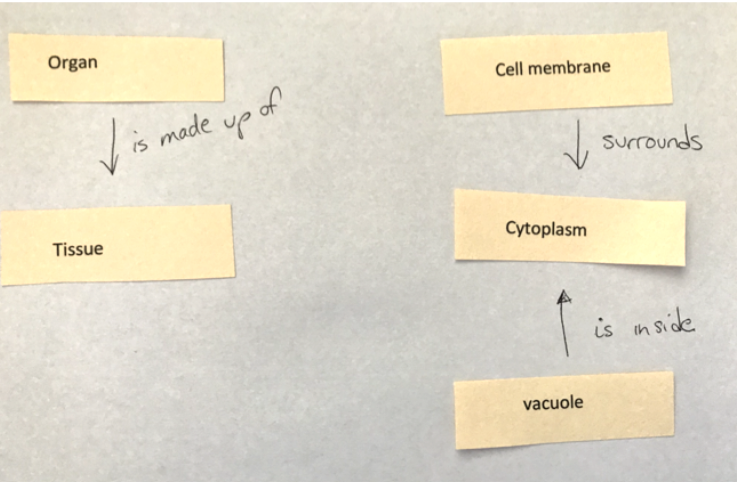 Organ
is made up of
Tissue
Cell membrane
surrounds
Cytoplasm
is inside
vacuole